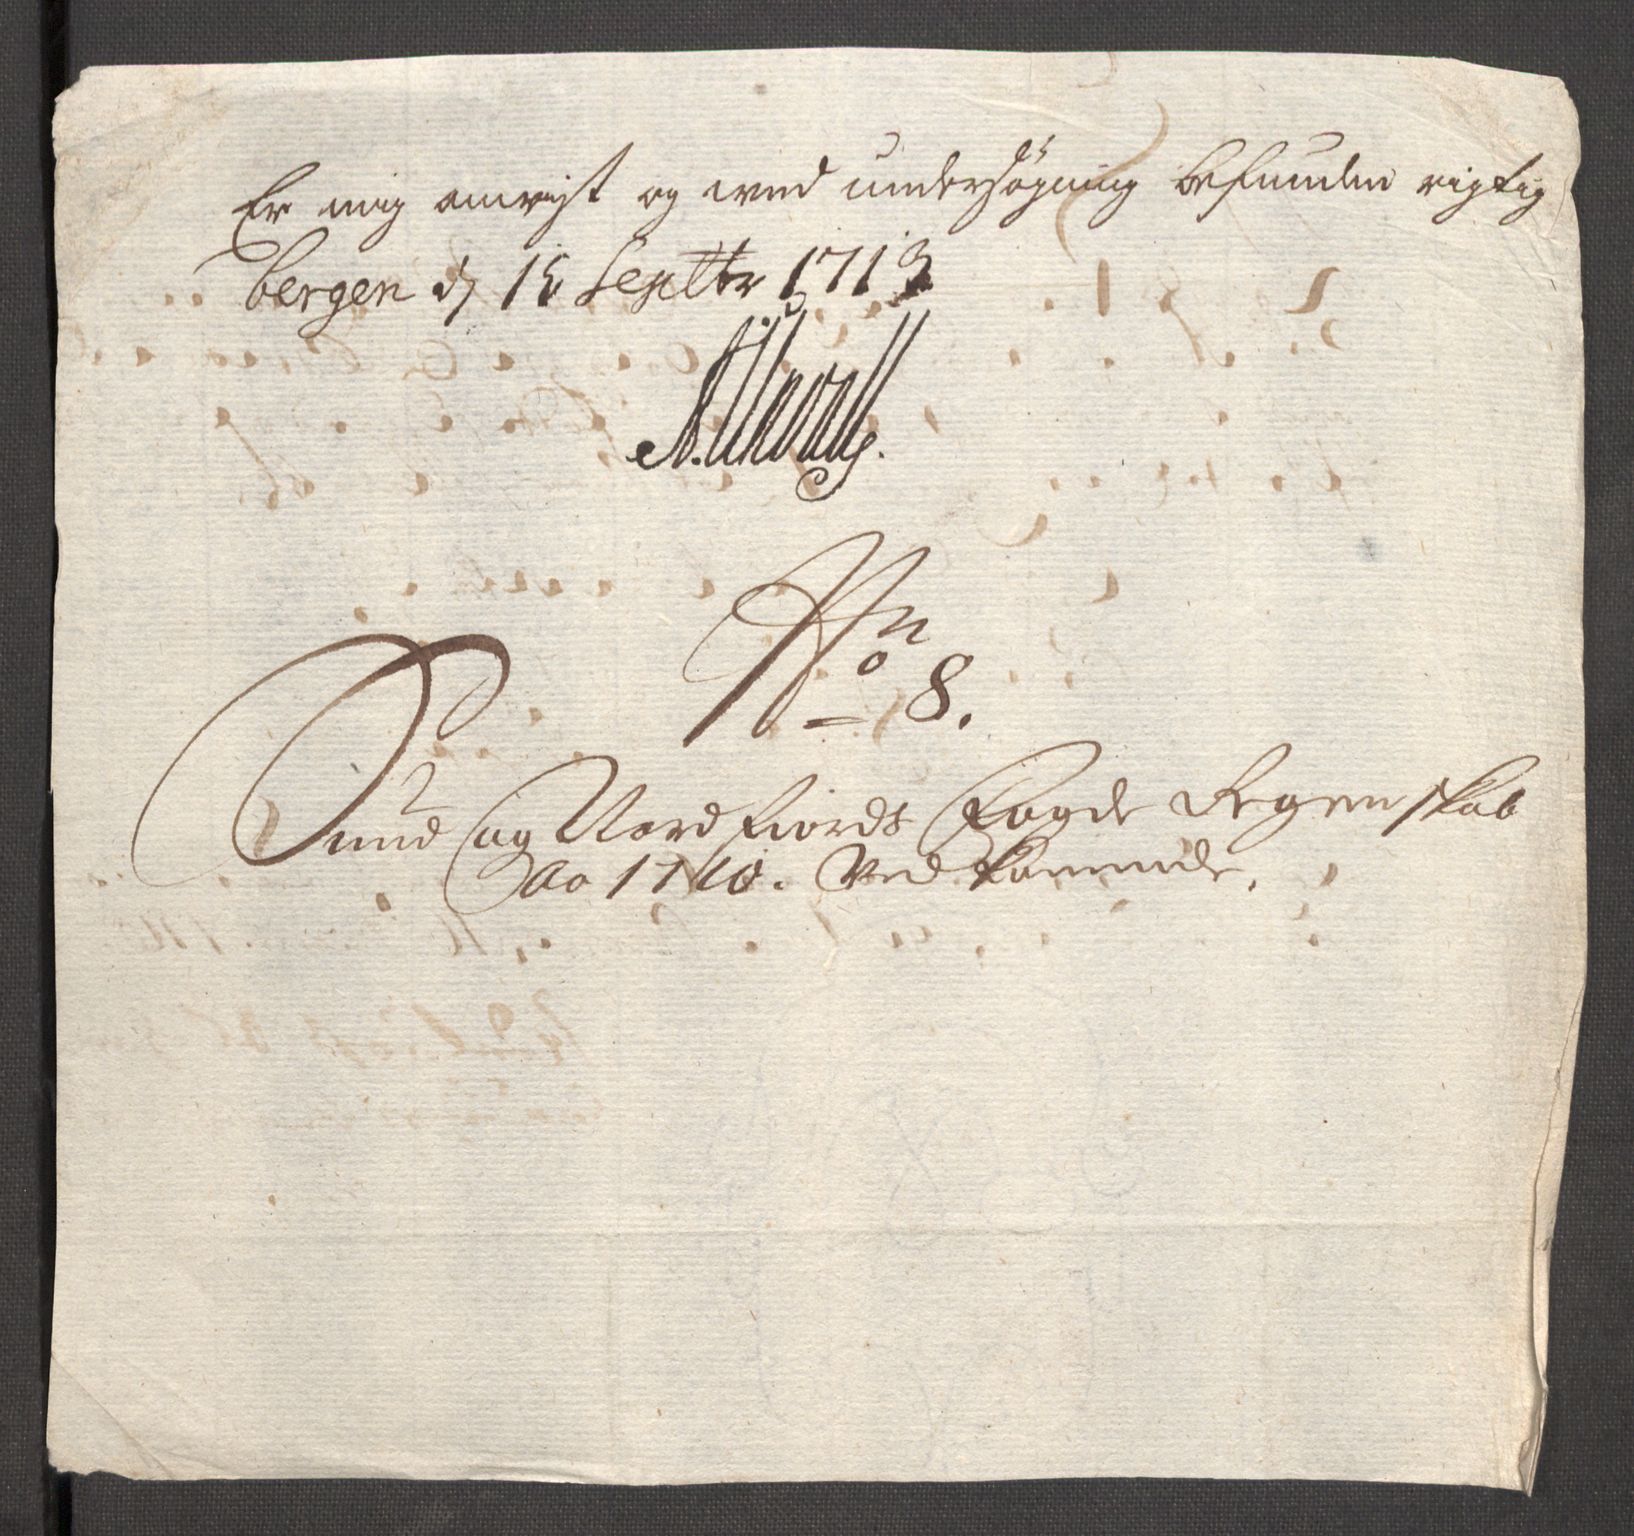 Er mig anvist og ved undersøgning befunden rigtig
bergen d 15 Septbr 1713
No 8.
Sund og Nordfiords Fogde Regenskab
Ao 1710. Vedkommende.